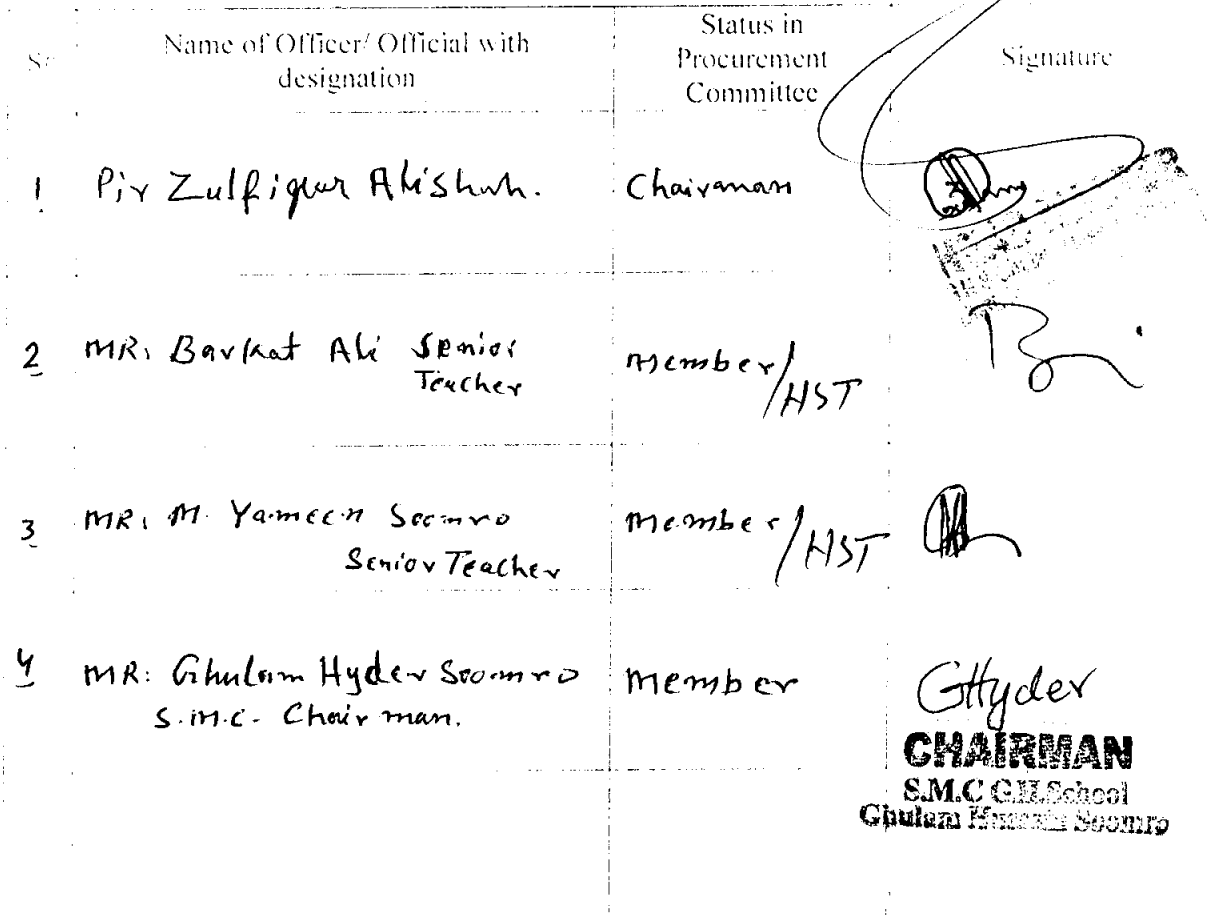 Sr Name of Officer/ Official with designation Status in Procurement Committee Signature
1 Pir Zulfiqar Ali Shah. Chairman
2 MR: Barkat Ali Senior Teacher Member/HST
3 MR: M. Yameen Soomro Senior Teacher Member/HST
4 MR: Ghulam Hyder Soomro S.M.C. Chairman. Member GHyder
CHAIRMAN
S.M.C G.H.School
Ghulam Hussain Soomro